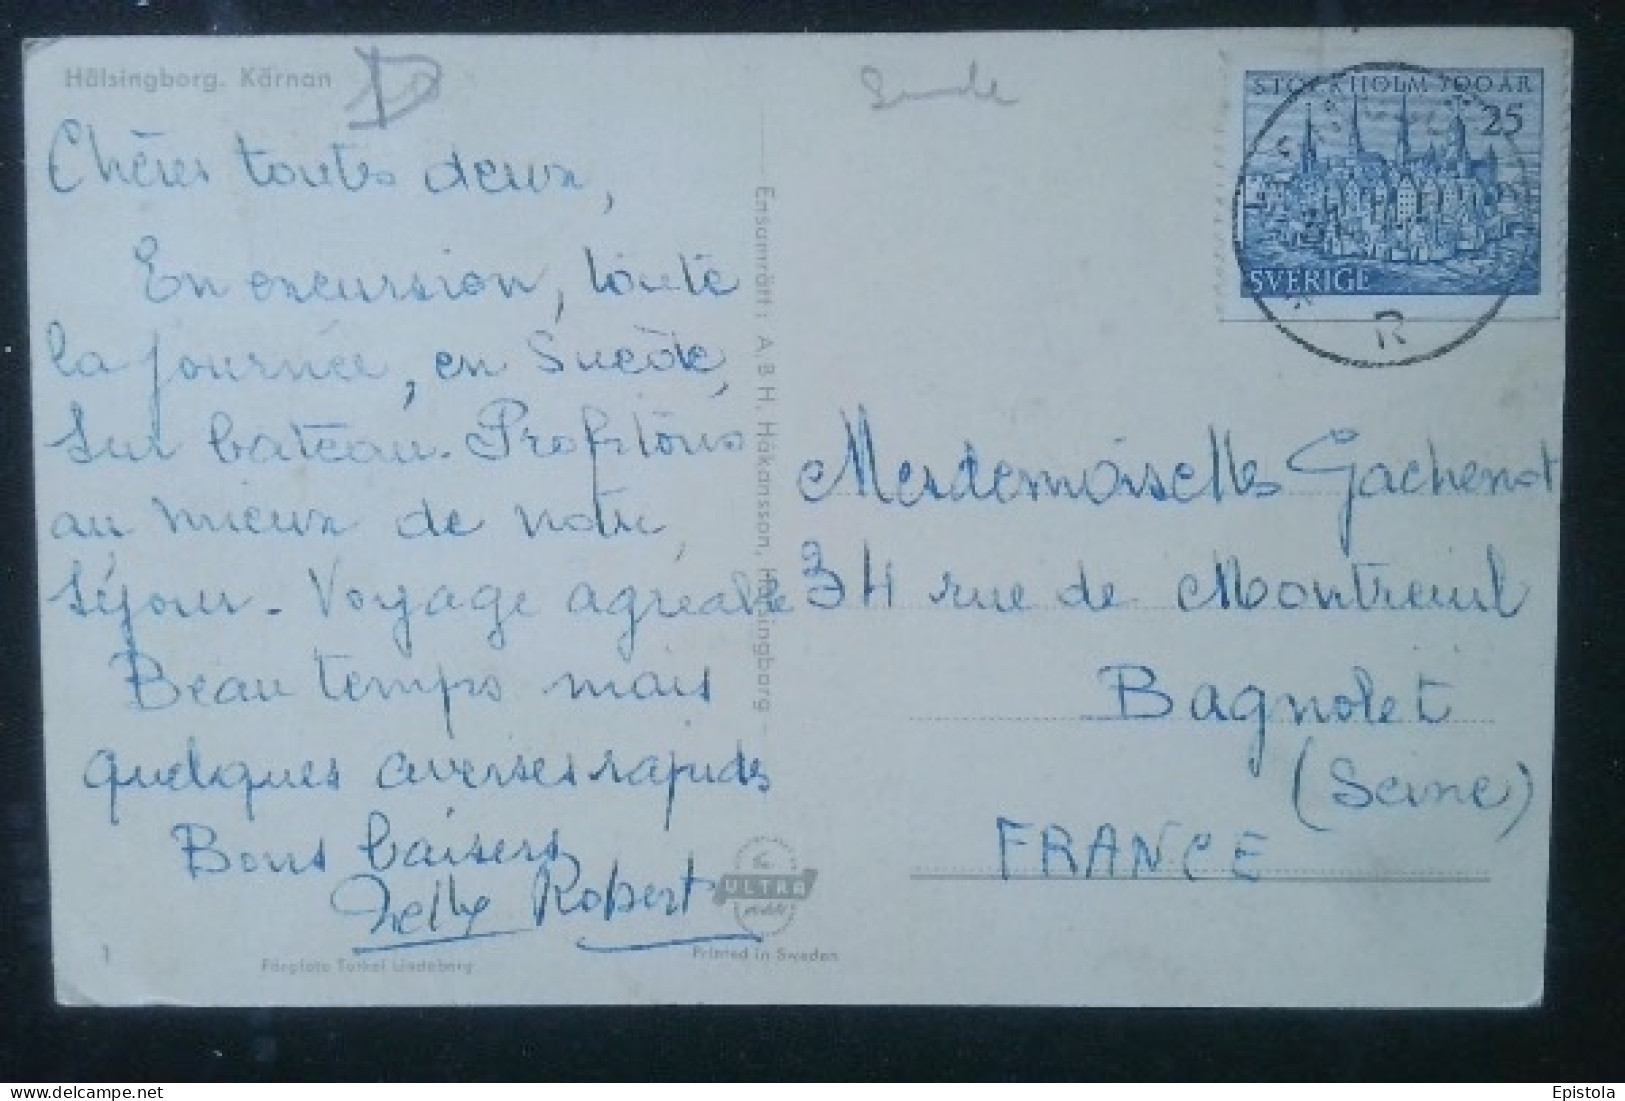 Hälsingborg. Kärnan
Chères toutes deux,
En excursion, toute
la journée, en Suède,
sur bateau. Profitons
au mieux de notre
séjour. Voyage agréable
Beau temps mais
quelques averses rapides
Bons baisers
Nelly Robert
1
Färgfoto Torkel Lindeberg
Ensamrätt: A.B H. Håkansson, Hälsingborg
ULTRA
Printed in Sweden
STOCKHOLM 700 ÅR
25
SVERIGE
R
Mesdemoiselles Gachenot
34 rue de Montreuil
Bagnolet
(Seine)
FRANCE
delcampe.net
Epistola